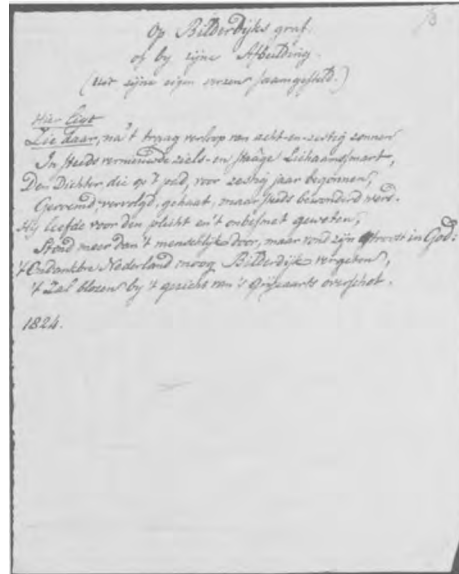 Op Bilderdijks graf.
of by zijne Afbeelding.
(Uit zijne eigen verzen saamgesteld.)
Hier ligt
Zie daar, na 't traag verloop van acht-en-zestig zonnen
In steeds vernieuwde ziels- en staâge lichaamssmart,
Den Dichter, die op 't pad, voor zestig jaar begonnen,
Geroemd, vervolgd, gehaat, maar steeds bewonderd werd.
Hy leefde voor den plicht en 't onbesmet geweten,
Stond meer dan 't menschlijke door, maar vond zijn troost in God:
't Ondankbre Nederland moog Bilderdijk vergeten,
't Zal blozen by 't gezicht van 's Grijzaarts overschot.
1824.